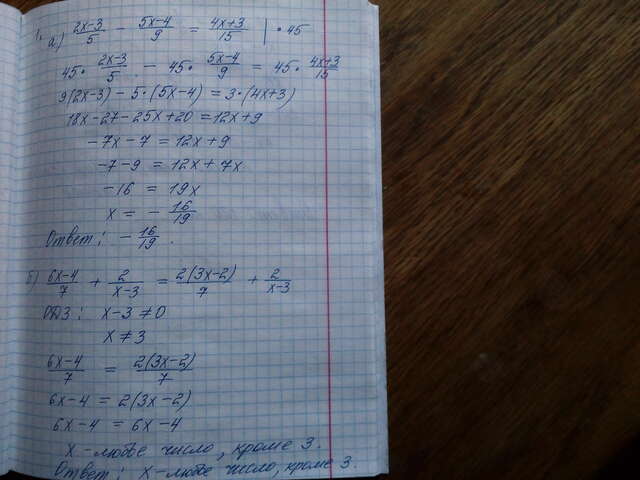 1. а) (2x-3)/5 - (5x-4)/9 = (4x+3)/15 | • 45
45 • (2x-3)/5 - 45 • (5x-4)/9 = 45 • (4x+3)/15
9(2x-3) - 5 • (5x-4) = 3 • (4x+3)
18x-27-25x+20 = 12x+9
-7x-7 = 12x+9
-7-9 = 12x+7x
-16 = 19x
x = - 16/19
Ответ: - 16/19.
б) (6x-4)/7 + 2/(x-3) = 2(3x-2)/7 + 2/(x-3)
ОДЗ: x-3 ≠ 0
x ≠ 3
(6x-4)/7 = 2(3x-2)/7
6x-4 = 2(3x-2)
6x-4 = 6x-4
x - любое число, кроме 3.
Ответ: x - любое число, кроме 3.